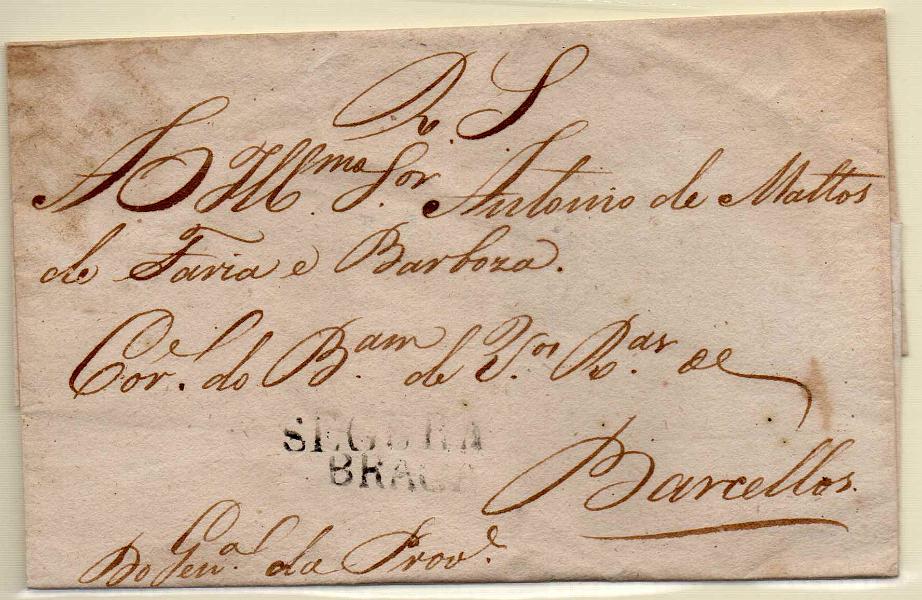 R. S
A O Ill.mo S.or Antonio de Mattos
de Faria e Barboza.
Cor.el do B.am de V.os R.ar de
SEGURA
BRAGA
Barcellos.
Do Gen.al da Prov.e